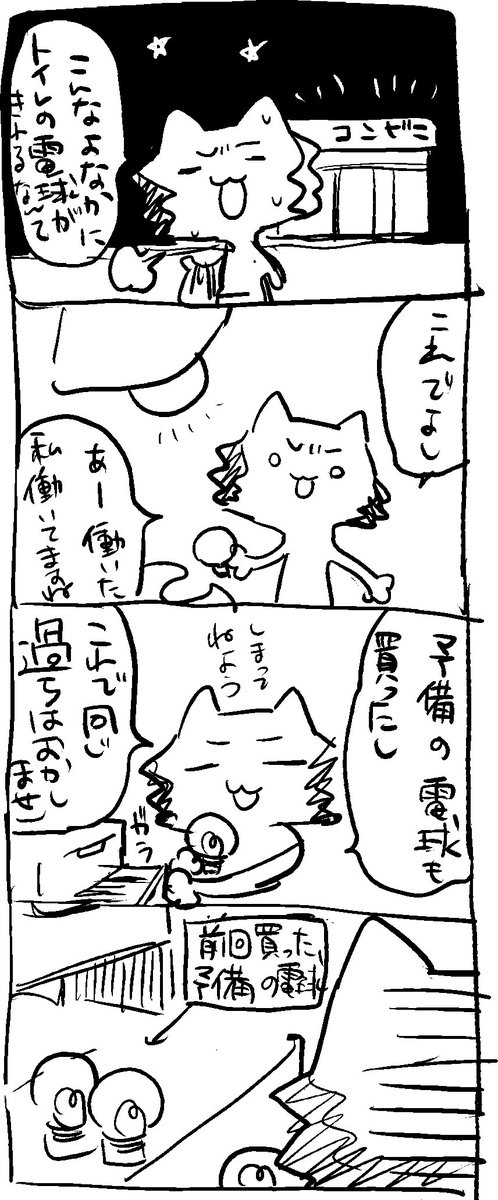 コンビニ
こんなよなかに
トイレの電球が
きれるなんて
これでよし
あー働いた
私働いてますね
予備の電球も
買ったし
しまって
ねよう
これで同じ
過ちはおかし
ません
ガラ
前回買った
予備の電球